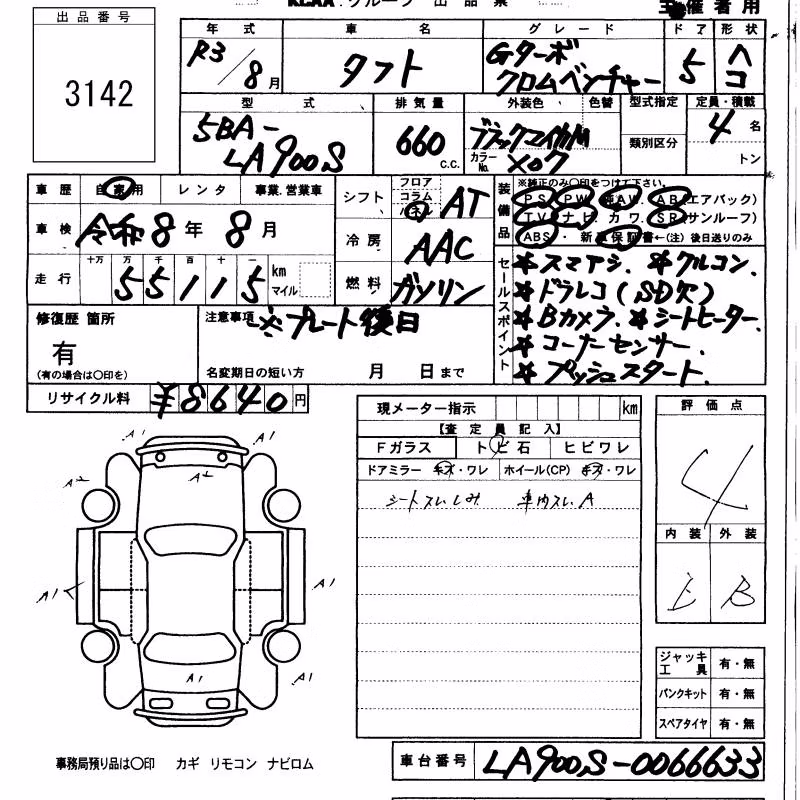 KCAA.グループ 出品票
主催者用
出品番号
3142
年式 車名 グレード ドア 形状
R3/8月 タフト Gターボ クロムベンチャー 5 ヘコ
型式 排気量 外装色 色替 型式指定 定員・積載
5BA-LA900S 660 c.c. ブラックマイカM カラーNo. X07 類別区分 4名 トン
車歴 自家用 レンタ 事業.営業車
シフト フロア コラム パネル AT
車検 令和8年8月
冷房 AAC
走行 十万 万 千 百 十 一 km マイル
55115
燃料 ガソリン
装備品 ※純正のみ〇印をつけて下さい。
PS PW 純AW. AB(エアバック)
TV ナビ カワ. SR(サンルーフ)
ABS・新車保証書←(注)後日送りのみ
セールスポイント
☆スマアシ. ☆クルコン.
☆ドラレコ(SD欠)
☆Bカメラ. ☆シートヒーター.
☆コーナーセンサー.
☆プッシュスタート.
修復歴 箇所
有
(有の場合は〇印を)
注意事項 ※プレート後日
名変期日の短い方 月 日まで
リサイクル料 ¥8640円
現メーター指示 km
【査定員記入】
Fガラス トビ石 ヒビワレ
ドアミラー キズ・ワレ ホイール(CP) キズ・ワレ
シートスレしみ 車内スレA
評価点
4
内装 外装
B
A1
A1
A2
A1
A1
A1
A1
ジャッキ工具 有・無
パンクキット 有・無
スペアタイヤ 有・無
事務局預り品は〇印 カギ リモコン ナビロム
車台番号 LA900S-0066633